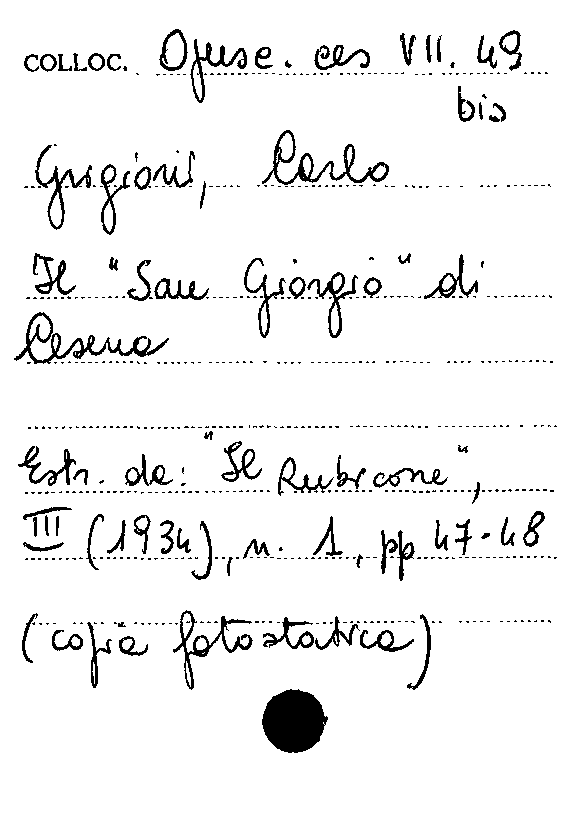 COLLOC. Opusc. ces VII. 49
bis
Grigioni, Carlo
Il "San Giorgio" di
Cesena
Estr. da: "Il Rubicone",
III (1934), n. 1, pp 47-48
(copia fotostatica)